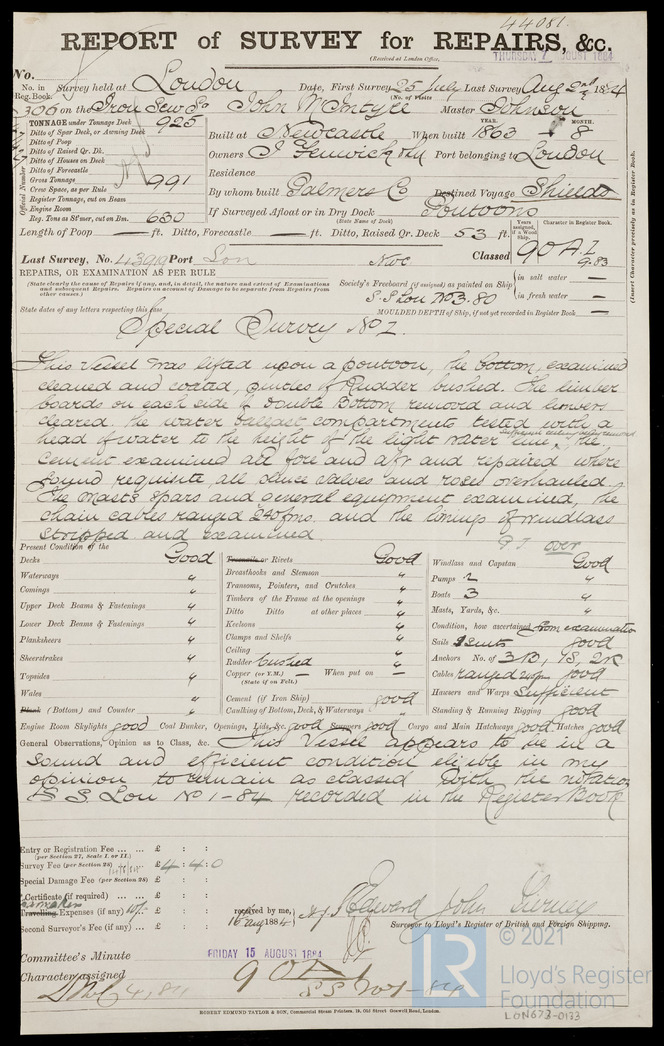 44081.
REPORT of SURVEY for REPAIRS, &c.
(Received at London Office,
THURSDAY 7 AUGUST 1884
No.
No. in Reg. Book. Survey held at London Date, First Survey 25 July Last Survey Aug 2nd 1884
(No. of Visits
306 on the Iron Screw Sr John McIntyre Master Johnson
TONNAGE under Tonnage Deck 925
Ditto of Spar Deck, or Awning Deck
Ditto of Poop
Ditto of Raised Qr. Dk.
Ditto of Houses on Deck
Ditto of Forecastle
Gross Tonnage 991
Cross Space, as per Rule
Register Tonnage, cut on Beam
Engine Room
Reg. Tons as St'mer, cut on Bm. 630
Official Number
Built at Newcastle When built YEAR. 1863 MONTH. 8
Owners J Fenwick Port belonging to London
Residence
By whom built Palmers Co Destined Voyage Shields
If Surveyed Afloat or in Dry Dock Pontoons
(State Name of Dock)
Length of Poop — ft. Ditto, Forecastle — ft. Ditto, Raised Qr. Deck 53 ft.
Years assigned, if a Wood Ship.
Character in Register Book.
Last Survey, No. 43919 Port Lon Classed 90 A.1
9.83
REPAIRS, OR EXAMINATION AS PER RULE
(State clearly the cause of Repairs if any, and, in detail, the nature and extent of Examinations and subsequent Repairs. Repairs on account of Damage to be separate from Repairs from other causes.)
Society's Freeboard (if assigned) as painted on Ship in salt water —
in fresh water —
S.S Lon No 3.80
MOULDED DEPTH of Ship, if not yet recorded in Register Book —
State dates of any letters respecting this case
(Insert Character precisely as in Register Book.)
Special Survey No 1.
This Vessel was lifted upon a pontoon, the bottom, examined
cleaned and coated, pintles of Rudder bushed. The limber
boards on each side of Double Bottom removed and limbers
cleared. the water ballast compartments tested with a
head of water to the height of the light water line, the
cement examined all fore and aft and repaired where
found requisite, all sluice valves and roses overhauled.
The Masts Spars and general equipment examined, the
chain cables ranged 240 fms. and the linings of windlass
stripped and examined
P T over
Present Condition of the
Decks Good
Waterways "
Comings "
Upper Deck Beams & Fastenings "
Lower Deck Beams & Fastenings "
Planksheers "
Sheerstrakes "
Topsides "
Wales "
Plank (Bottom) and Counter "
Treenails or Rivets Good
Breasthooks and Stemson "
Transoms, Pointers, and Crutches "
Timbers of the Frame at the openings "
Ditto Ditto at other places "
Keelsons "
Clamps and Shelfs "
Ceiling "
Rudder bushed "
Copper (or Y.M.) — When put on —
(State if on Felt.)
Cement (if Iron Ship) good
Caulking of Bottom, Deck, & Waterways "
Windlass and Capstan Good
Pumps 2 "
Boats 3 "
Masts, Yards, &c. "
Condition, how ascertained from examination
Sails 2 suits good
Anchors No. of 3 B, 1 S, 2 K
Cables ranged good
Hawsers and Warps Sufficient
Standing & Running Rigging good
Engine Room Skylights good Coal Bunker, Openings, Lids, &c. good Scuppers good Cargo and Main Hatchways good Hatches good
General Observations, Opinion as to Class, &c. This Vessel appears to be in a
sound and efficient condition eligible in my
opinion to remain as classed with the notation
of S S. Lon No 1-84 recorded in the Register Book
Entry or Registration Fee ... ... £ : :
(per Section 27, Scale I. or II.)
Survey Fee (per Section 28) £ 4 : 4 : 0
Special Damage Fee (per Section 28) £ : :
Certificate (if required) ... £ : :
Travelling Expenses (if any) £ : :
Second Surveyor's Fee (if any) ... £ : :
received by me,
16 Aug 1884
Edward John Tierney
Surveyor to Lloyd's Register of British and Foreign Shipping.
Committee's Minute FRIDAY 15 AUGUST 1884
Character assigned 90A1
S S No 1-84
© 2021
LR
Lloyd's Register
Foundation
LON673-0133
ROBERT EDMUND TAYLOR & SON, Commercial Steam Printers, 19, Old Street, Goswell Road, London.